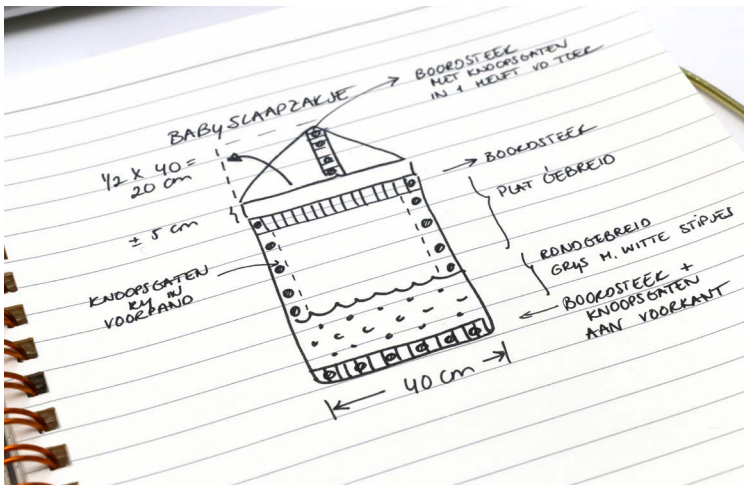 BABYSLAAPZAKJE
BOORDSTEEK
MET KNOOPSGATEN
IN 1 HELFT VD TOER
1/2 x 40 =
20 cm
± 5 cm
KNOOPSGATEN
RIJ IN
VOORPAND
BOORDSTEEK
PLAT GEBREID
RONDGEBREID
GRIJS M. WITTE STIPJES
BOORDSTEEK +
KNOOPSGATEN
AAN VOORKANT
40 cm